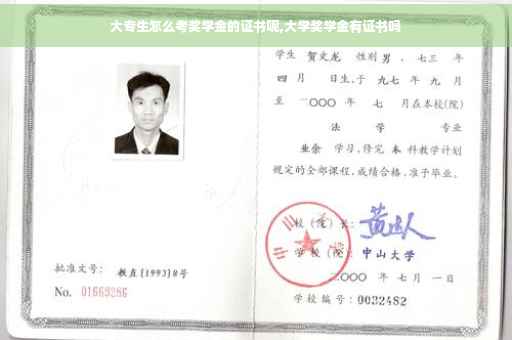 大专生怎么考奖学金的证书呢,大学奖学金有证书吗
学生 贺文龙 性别 男 、七三 年
四 月 日生,于 九七 年 九 月
至 二〇〇〇 年 七 月在本校(院)
法 学 专业
业余 学习,修完 本 科教学计划
规定的全部课程,成绩合格,准予毕业。
校(院)长:
学校(院): 中山大学
二〇〇〇 年 七 月 一 日
批准文号: 教直[1993]8号
No. 01669286
学校编号: 0032482